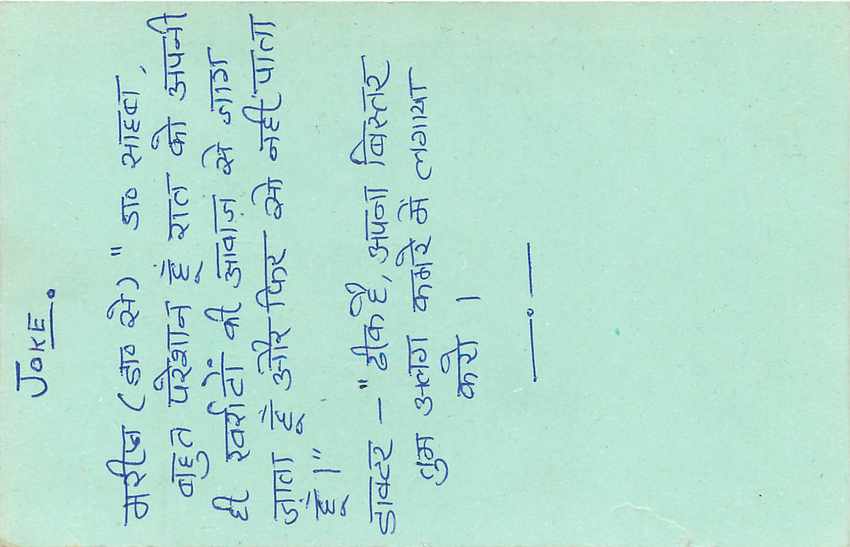 JOKE.
मरीज़ (डा० से) " डा० साहब,
बहुत परेशान हूं रात को अपनी
ही खर्राटों की आवाज़ से जाग
जाता हूं और फिर सो नहीं पाता
हूं।"
डाक्टर - "ठीक है, अपना बिस्तर
तुम अलग कमरे में लगाया
करो।